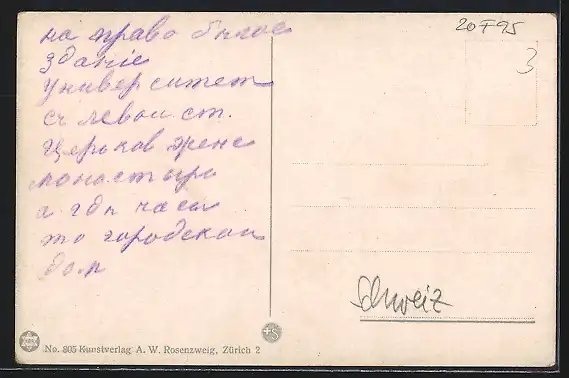 на право бѣлое
зданіе
Университет
съ левои ст.
Церьков женс
монастыра
а гдп часы
то городскои
дом
20 I 95
3
Schweiz
No. 805 Kunstverlag A. W. Rosenzweig, Zürich 2